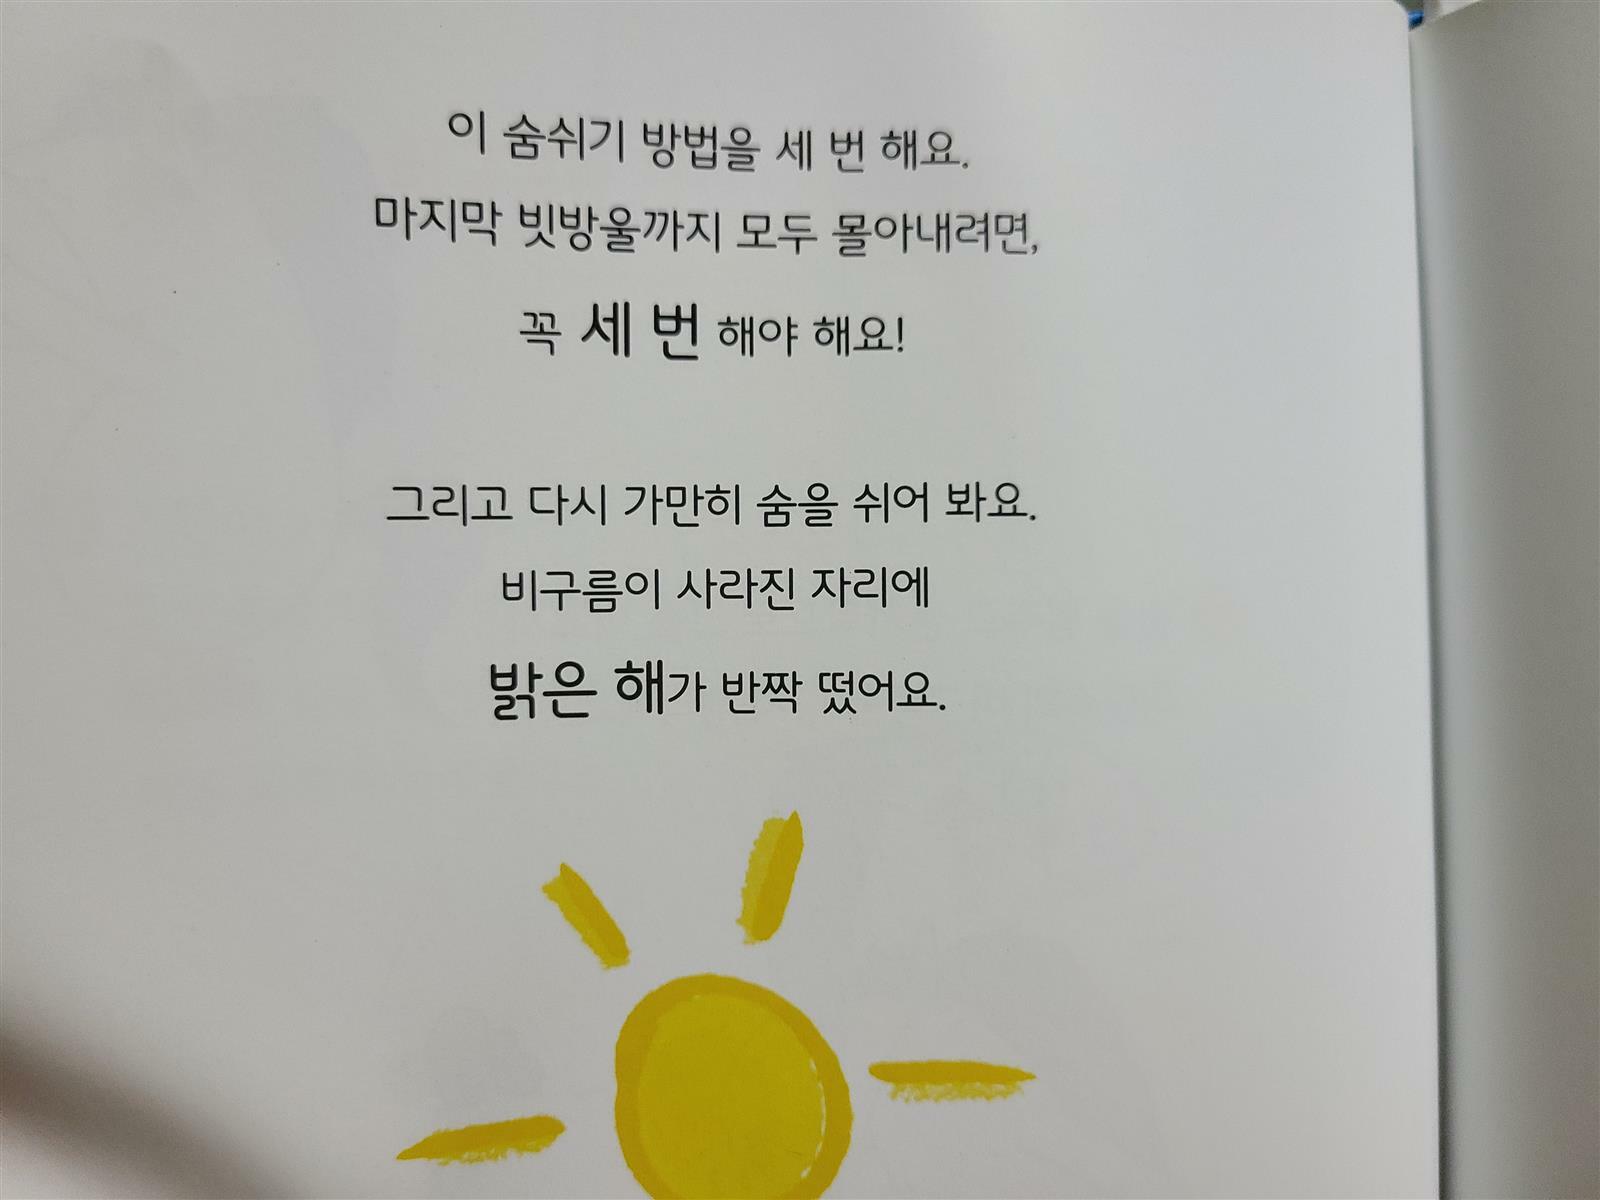 이 숨쉬기 방법을 세 번 해요.
마지막 빗방울까지 모두 몰아내려면,
꼭 세 번 해야 해요!
그리고 다시 가만히 숨을 쉬어 봐요.
비구름이 사라진 자리에
밝은 해가 반짝 떴어요.